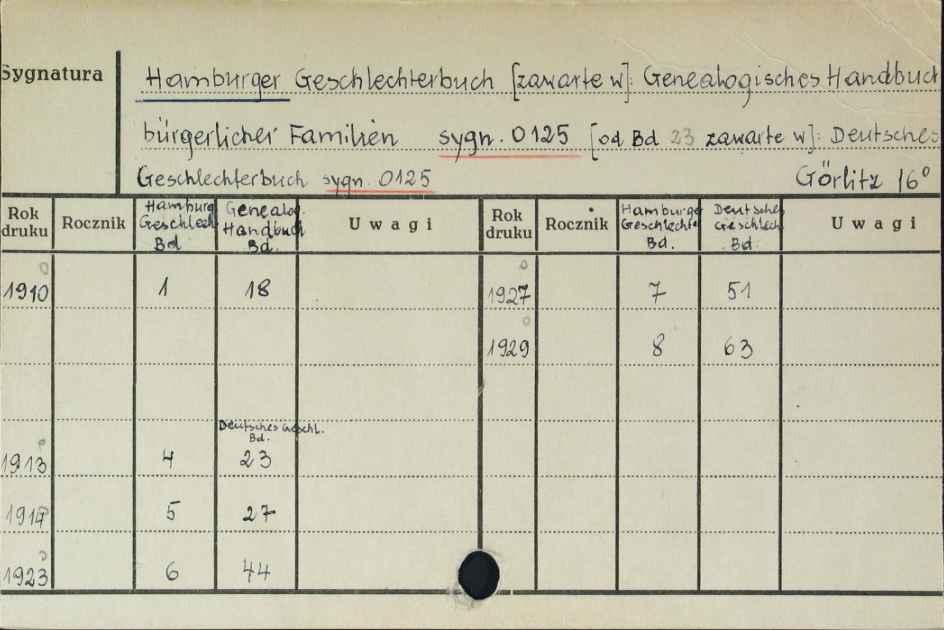 Sygnatura
Hamburger Geschlechterbuch [zawarte w]: Genealogisches Handbuch
bürgerlicher Familien sygn. 0125 [od Bd 23 zawarte w]: Deutsches
Geschlechterbuch sygn. 0125 Görlitz 16°
Rok druku Rocznik Hamburg Geschlech Bd Genealog. Handbuch Bd. Uwagi Rok druku Rocznik Hamburge Geschlechte Bd. Deutsches Geschlech Bd. Uwagi
1910 1 18 1927 7 51
1929 8 63
Deutsches Geschl. Bd.
1913 4 23
1914 5 27
1923 6 44